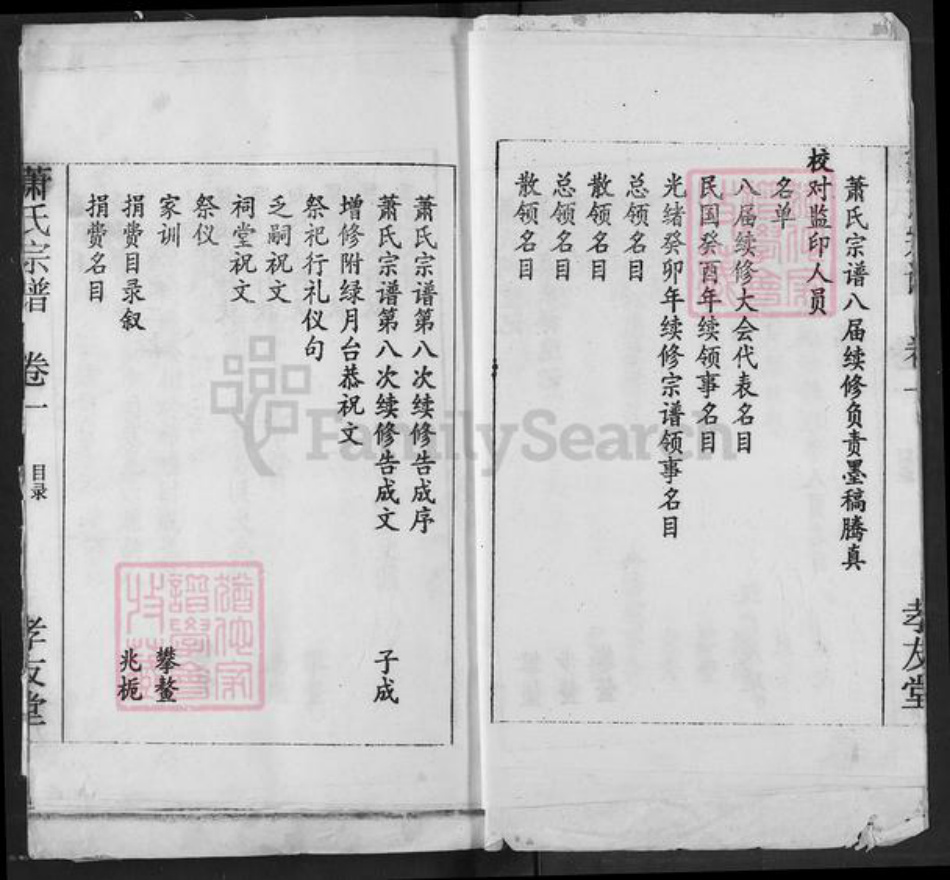 萧氏宗谱八届续修负责墨稿腾真
校对监印人员
名单
八届续修大会代表名目
民国癸酉年续领事名目
光绪癸卯年续修宗谱领事名目
总领名目
散领名目
总领名目
散领名目
孝友堂
萧氏宗谱第八次续修告成序
萧氏宗谱第八次续修告成文 子成
增修附绿月台恭祝文
祭祀行礼仪句
乏嗣祝文
祠堂祝文
祭仪
家训 攀鳌
捐费目录叙 兆栀
捐费名目
萧氏宗谱 卷一 目录 孝友堂
FamilySearch